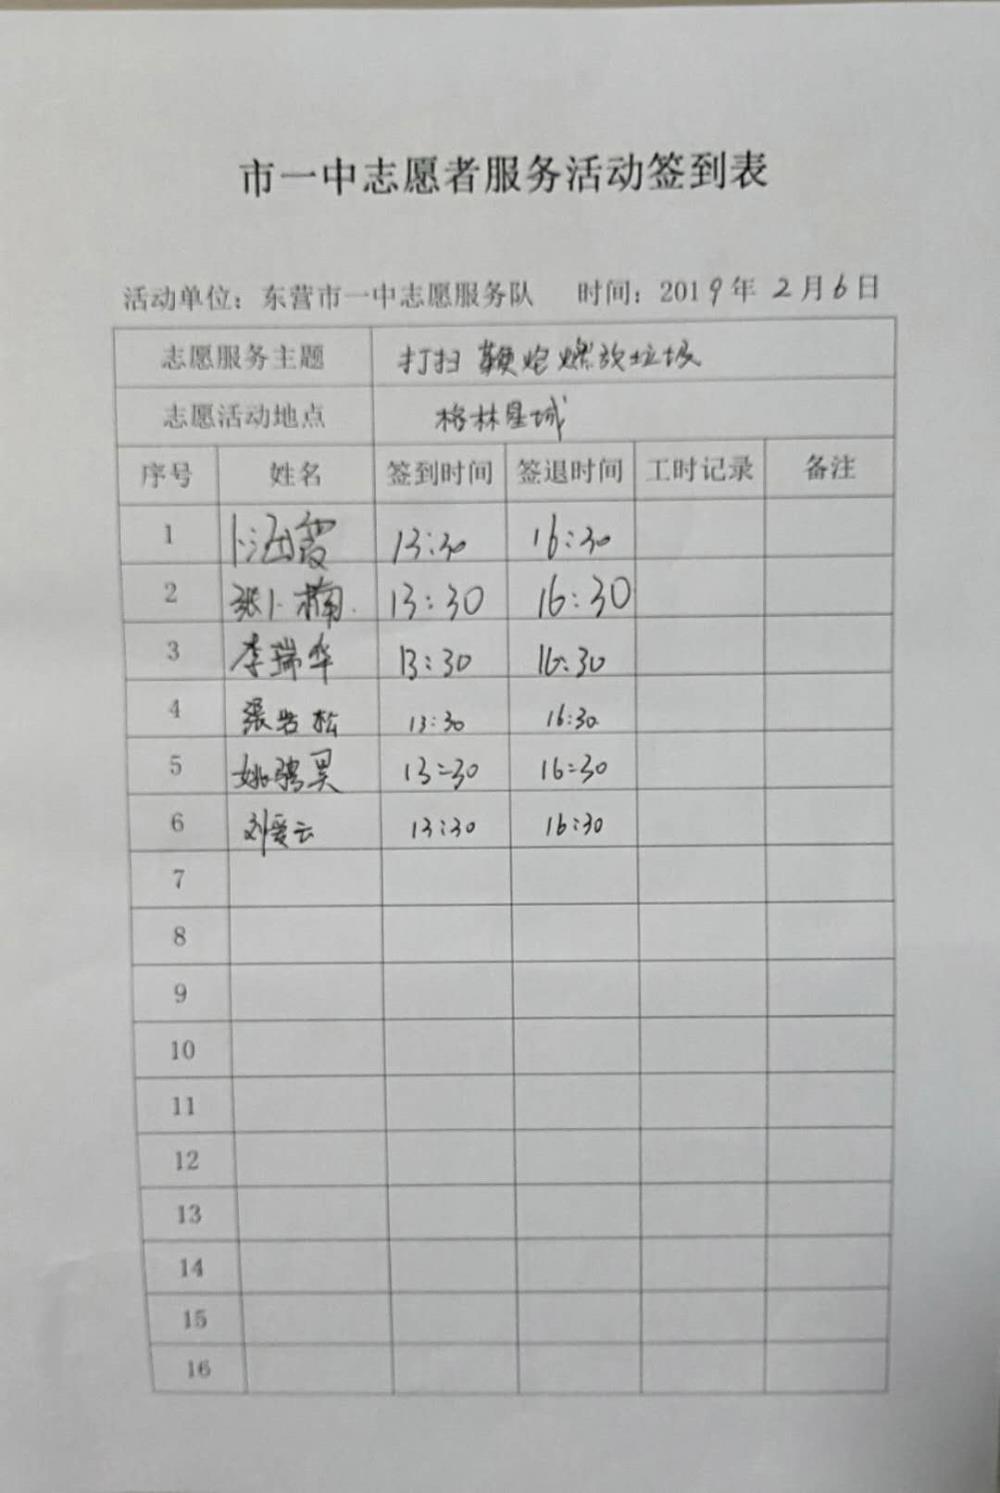 市一中志愿者服务活动签到表
活动单位：东营市一中志愿服务队 时间：2019年2月6日
志愿服务主题 打扫鞭炮燃放垃圾
志愿活动地点 格林星城
序号 姓名 签到时间 签退时间 工时记录 备注
1 卜涵霞 13:30 16:30
2 张卜楠 13:30 16:30
3 李瑞华 13:30 16:30
4 張岩松 13:30 16:30
5 姚骋昊 13:30 16:30
6 刘爱云 13:30 16:30
7
8
9
10
11
12
13
14
15
16